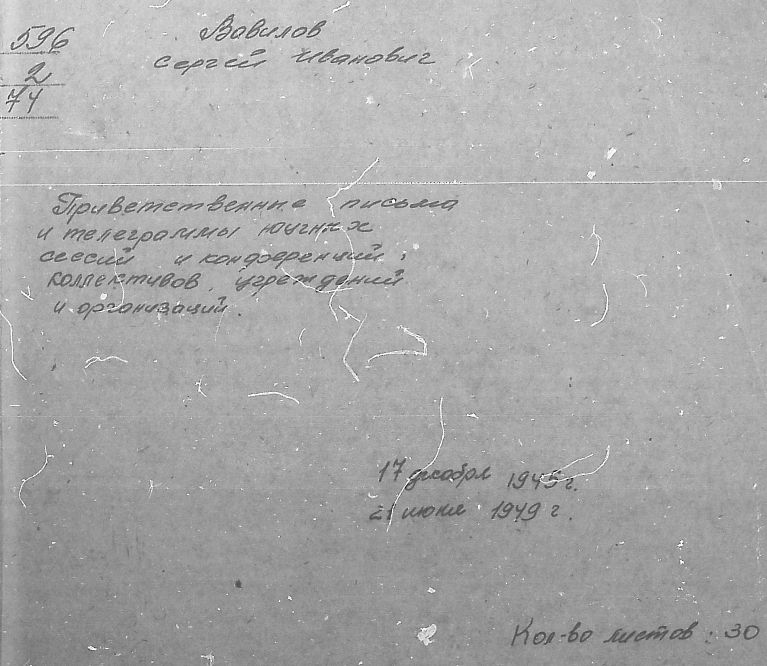 596
2
74
Вавилов
Сергей Иванович
Приветственные письма
и телеграммы научных
сессий и конференций,
коллективов, учреждений
и организаций.
17 декабря 1945 г.
21 июня 1949 г.
Кол-во листов: 30